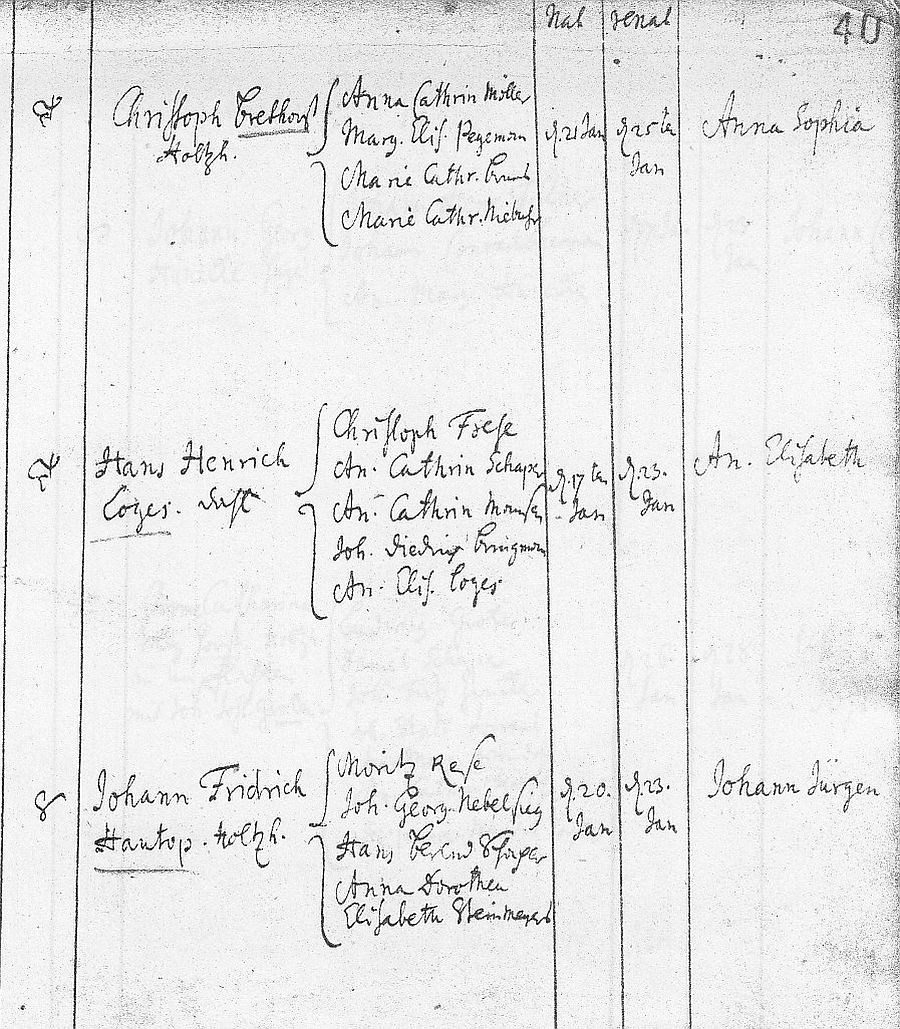 Nat renat 40
Christoph Brethorst
Holtzh.
Anna Cathrin Möller
Marg. Elis. Pegeman
Marie Cathr.
Marie Cathr. Niebuhr
d. 21 Jan
d. 25 ta
Jan
Anna Sophia
Hans Henrich
Coges.
Christoph Frese
An. Cathrin Schaper
An. Cathrin
Joh. Diedrix Bringman
An. Elis. Coges
d. 17 ta
Jan
d. 23.
Jan
An. Elisabeth
8
Johann Fridrich
Hantop. Holtzh.
Moritz Rese
Joh. Georg. Nebelsieg
Hans Berend
Anna Dorothea
Elisabeth Steinmeyers
d. 20.
Jan
d. 23.
Jan
Johann Jürgen